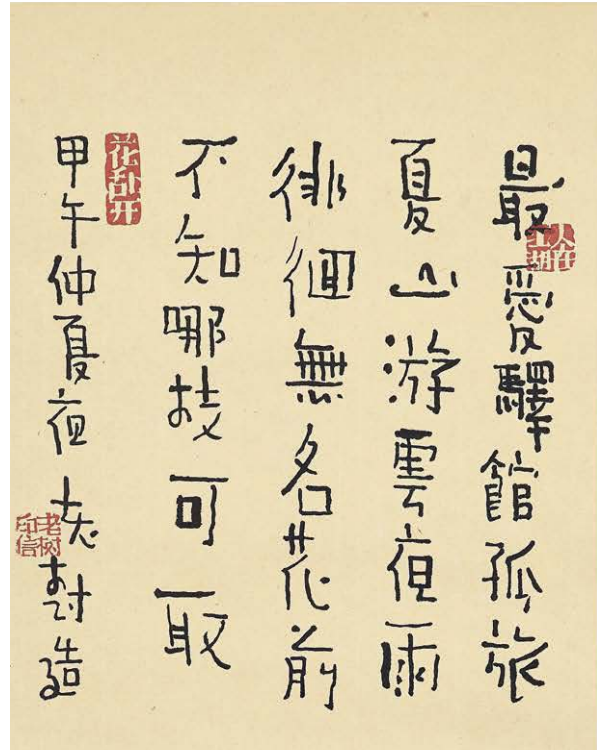 最愛驛館孤旅
夏山游雲夜雨
徘徊無名花前
不知哪枝可取
甲午仲夏夜 老树造
人在江湖
花乱开
老树印信